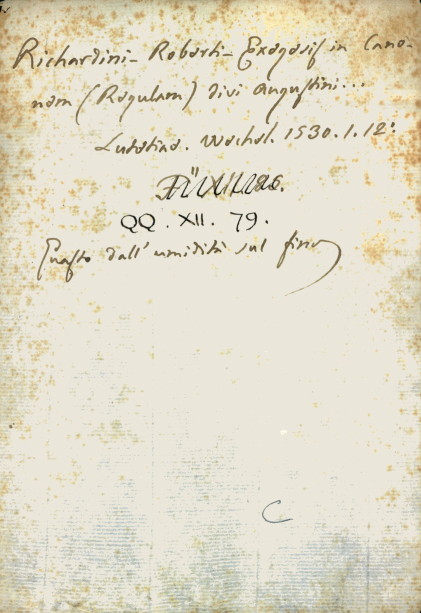 Richardini - Roberti - Exegesis in Cano-
nem (Regulam) divi Augustini...
Lutetiae. Wechel. 1530. 1. 12°.
QQ. XII. 79.
Guasto dall'umidità sul fine)
C